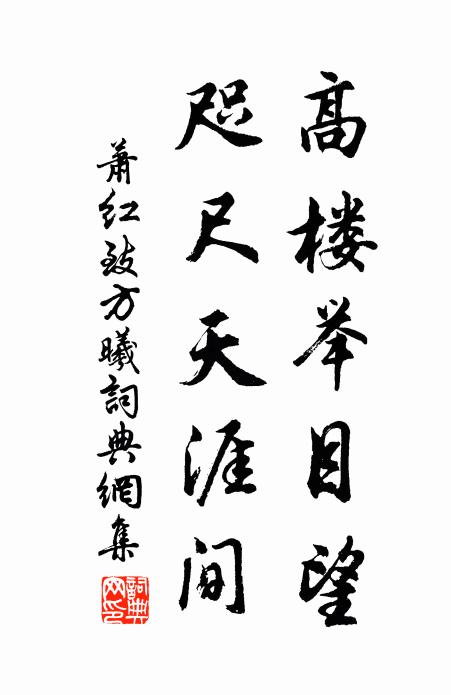 高楼举目望
咫尺天涯间
萧红致方曦詞典網集
詞典
网印